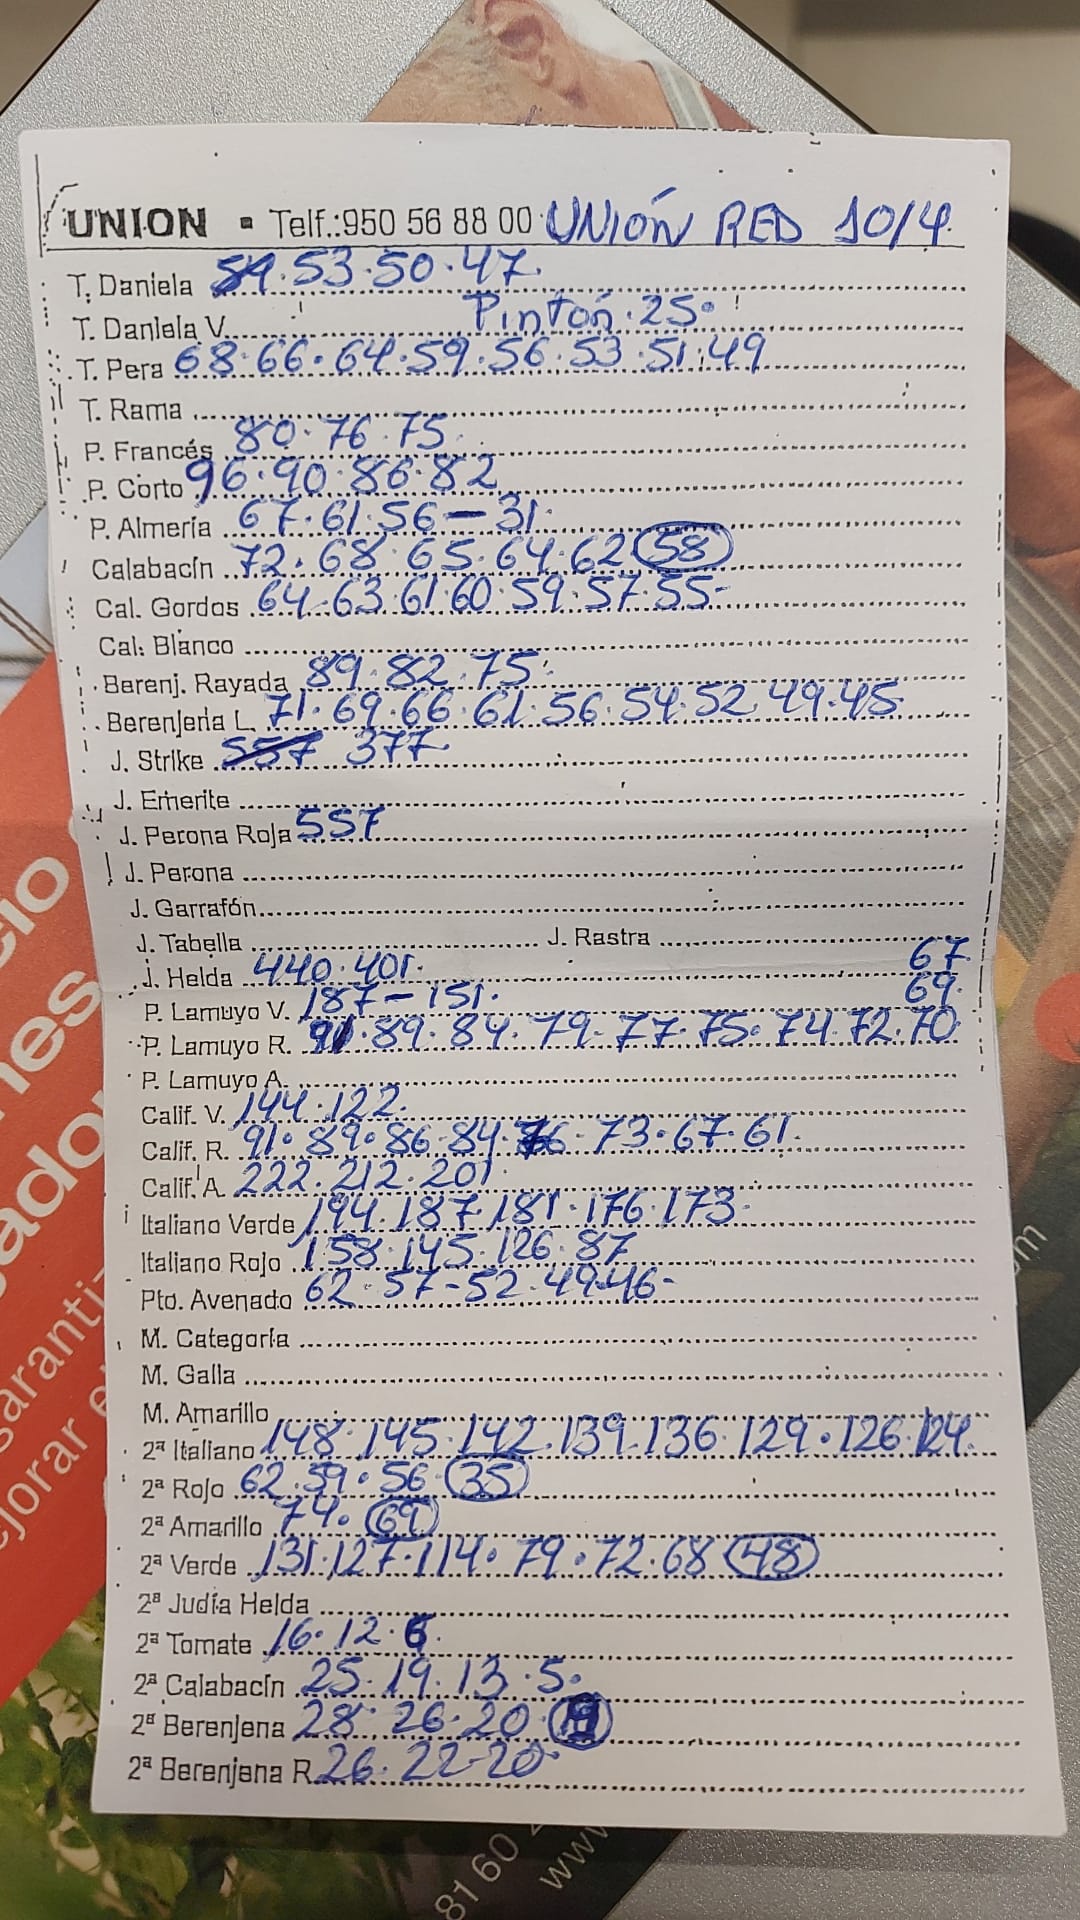 UNION ▪ Telf.:950 56 88 00 UNIÓN RED 10/4.
T. Daniela 53.50.47.
T. Daniela V. Pintón.25.
T. Pera 68.66.64.59.56.53.51.49
T. Rama
P. Francés 80.76.75.
P. Corto 96.90.86.82
P. Almería 67.61.56-31.
Calabacín 72.68.65.64.62 (58)
Cal. Gordos 64.63.61.60.59.57.55-
Cal. Blanco
Berenj. Rayada 89.82.75.
Berenjena L. 71.69.66.61.56.54.52.49.45
J. Strike 557 377
J. Emerite
J. Perona Roja 557
J. Perona
J. Garrafón
J. Tabella J. Rastra
J. Helda 440.401. 67.
P. Lamuyo V. 187-151. 69.
P. Lamuyo R. 91.89.84.79.77.75.74.72.70.
P. Lamuyo A.
Calif. V. 144.122.
Calif. R. 91.89.86.84.76-73.67.61.
Calif. A. 222.212.201
Italiano Verde 194.187.181.176.173.
Italiano Rojo 158.145.126.87
Pto. Avenado 62.57-52.49.46-
M. Categoría
M. Galia
M. Amarillo
2ª Italiano 148.145.142.139.136.129.126.124.
2ª Rojo 62.59.56.(35)
2ª Amarillo 74.(69)
2ª Verde 131.127.114.79.72.68 (48)
2ª Judía Helda
2ª Tomate 16.12.6.
2ª Calabacín 25.19.13.5.
2ª Berenjena 28.26.20
2ª Berenjena R. 26.22-20.
81 60
www.